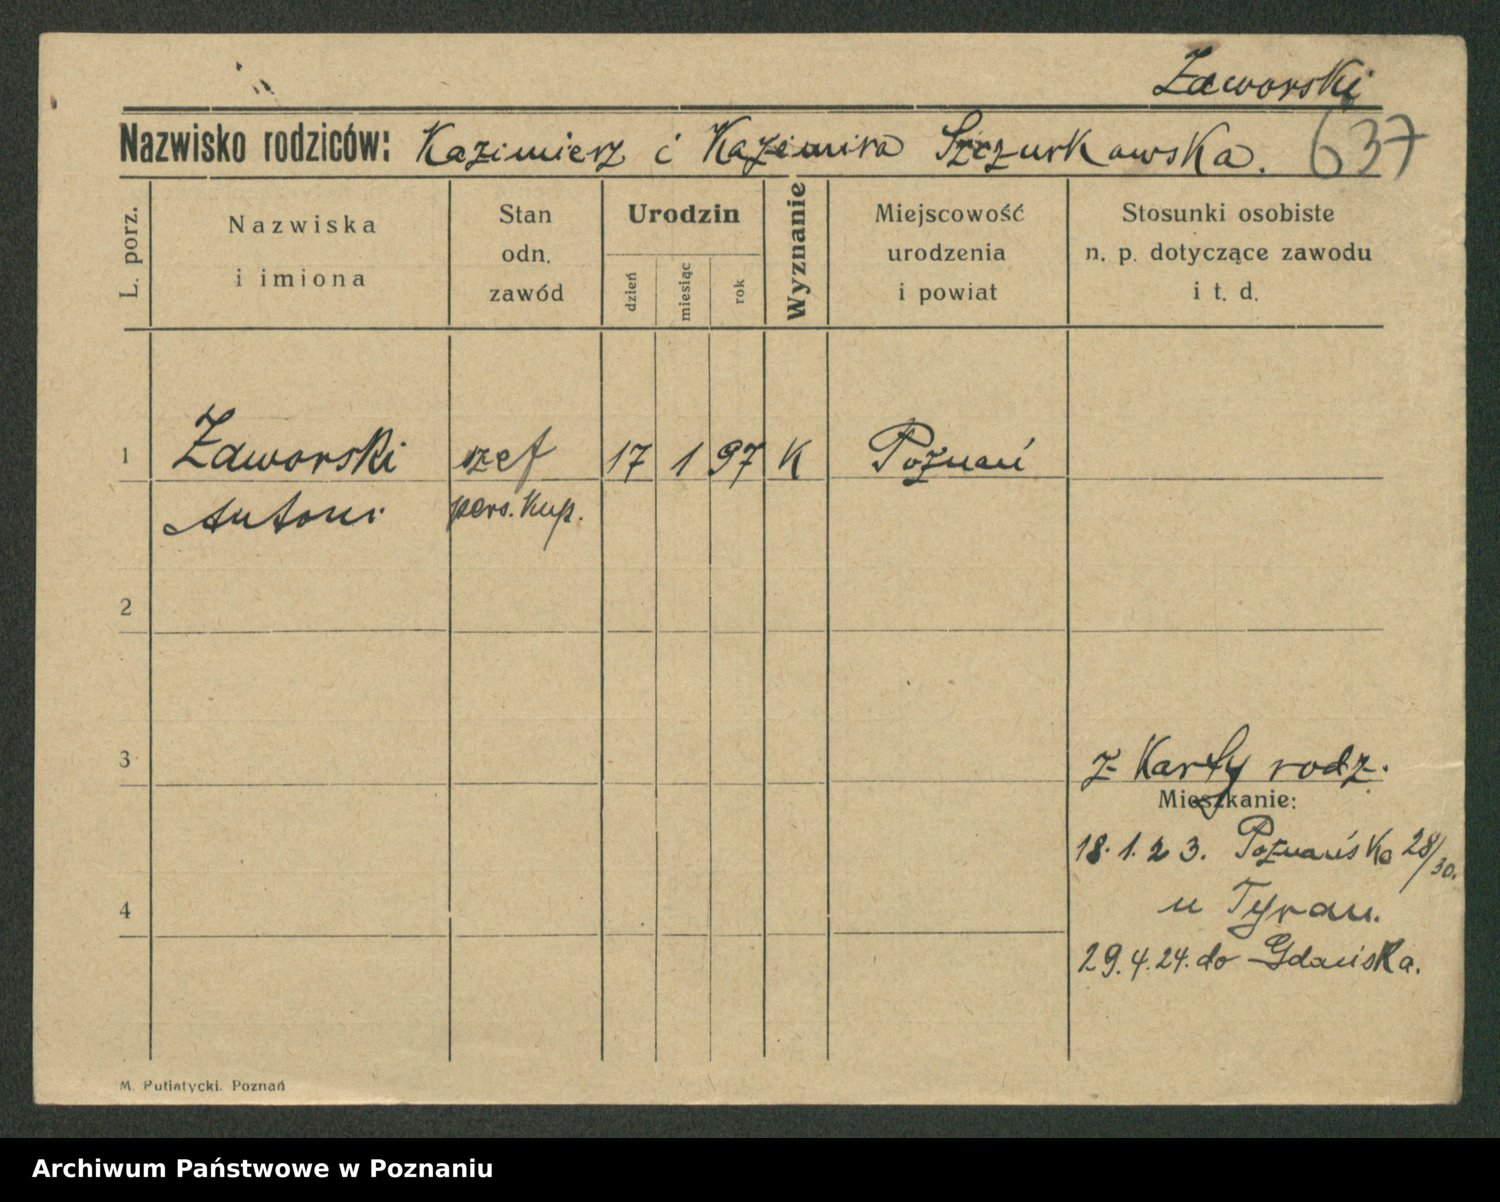 Zaworski
Nazwisko rodziców: Kazimierz i Kazimira Szczurkowska.
637
L. porz.
Nazwiska
i imiona
Stan
odn.
zawód
Urodzin
dzień
miesiąc
rok
Wyznanie
Miejscowość
urodzenia
i powiat
Stosunki osobiste
n. p. dotyczące zawodu
i t. d.
1 Zaworski szef 17 1 97 K Poznań
Antoni pers. kup.
2
3
z Karty rodz.
Mieszkanie:
18.1.23. Poznańska 28/30.
4
u Tyran.
29.4.24. do Gdańska.
M. Putiatycki. Poznań
Archiwum Państwowe w Poznaniu